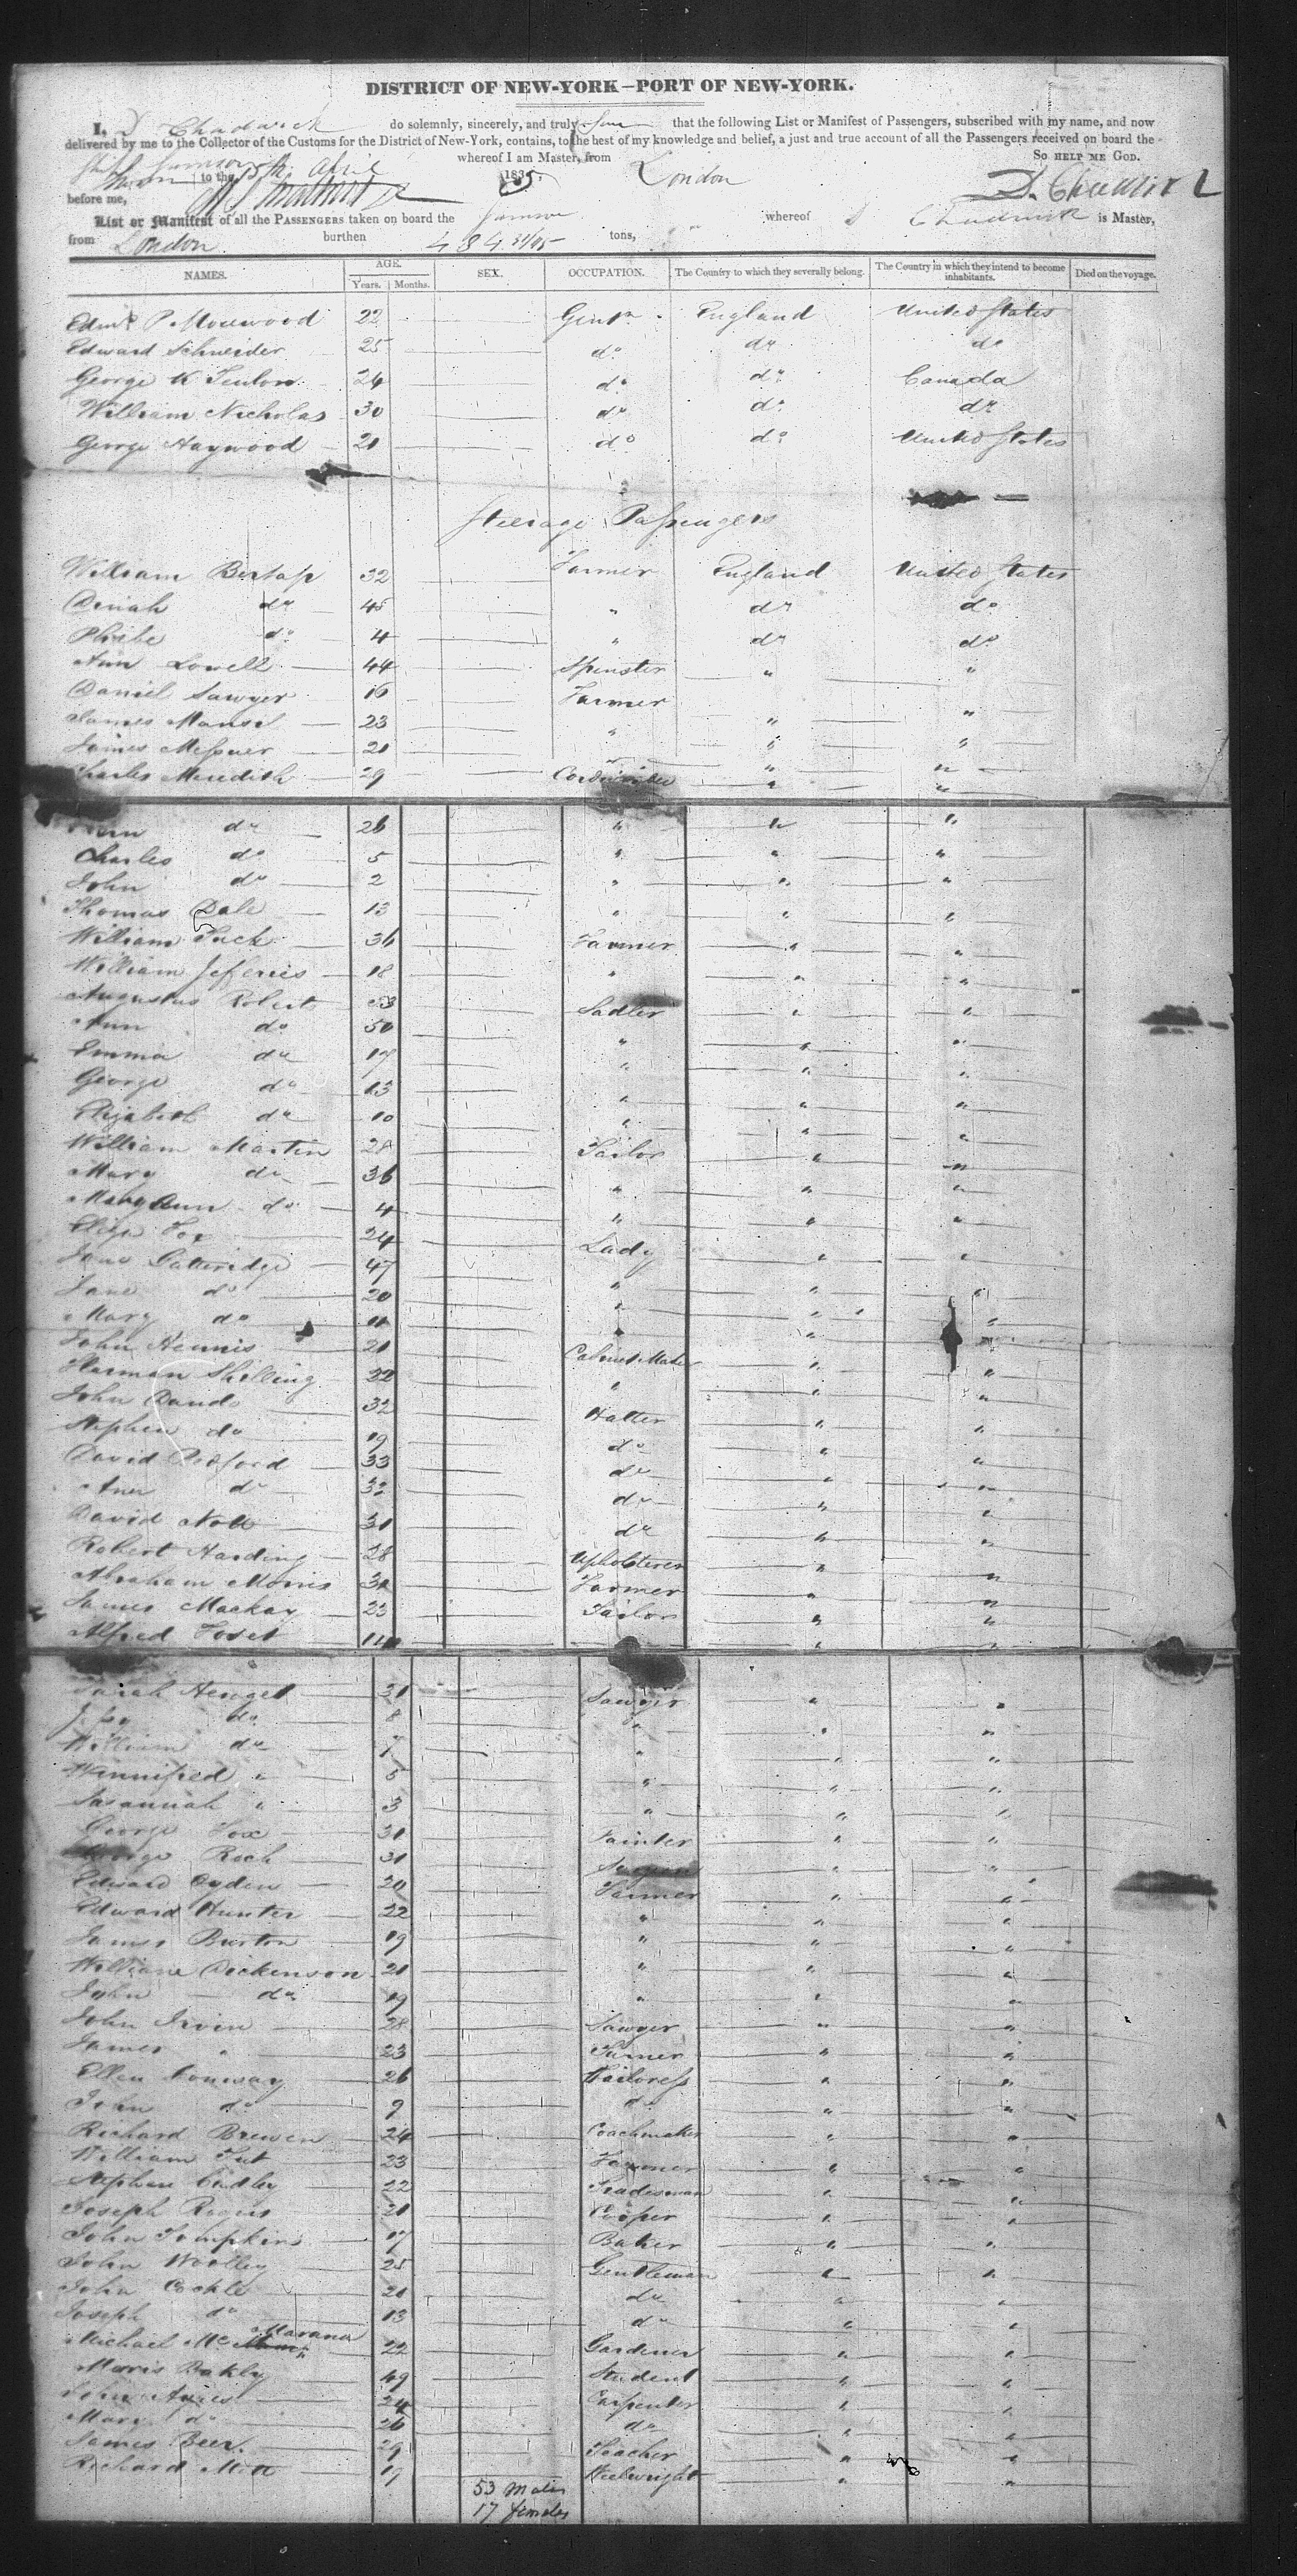 DISTRICT OF NEW-YORK—PORT OF NEW-YORK.
I, D Chadwick do solemnly, sincerely, and truly that the following List or Manifest of Passengers, subscribed with my name, and now
delivered by me to the Collector of the Customs for the District of New-York, contains, to the best of my knowledge and belief, a just and true account of all the Passengers received on board the
Ship Samson whereof I am Master, from London So HELP ME GOD.
to the April 1835, D. Chadwick
before me,
List or Manifest of all the PASSENGERS taken on board the Samson whereof D Chadwick is Master,
from London burthen 484 31/95 tons,
NAMES. AGE. SEX. OCCUPATION. The Country to which they severally belong. The Country in which they intend to become inhabitants. Died on the voyage.
Years. Months.
Edmd P Morewood 22 Gentn England United States
Edward Schneider 25 do do do
George K Teulon 24 do do Canada
William Nicholas 30 do do do
George Haywood 21 do do United States
Steerage Passengers
William 32 Farmer England United States
Dinah do 45 " do do
Phebe do 4 " do do
Ann Lowell 44 Spinster " "
Daniel Sawyer 16 Farmer
James 23 " " "
James Messuer 21 " "
Charles Meredith 29 Cordwainer " "
do 26 " " "
Charles do 5 " " "
John do 2 " " "
Thomas Dale 13 " " "
William 36 Farmer " "
William Jefferies 18 " " "
Augustus Robert 53 Sadler " "
Ann do 50 " " "
Emma do 17 " " "
George do 13 " " "
Elizabeth do 10 " " "
William Martin 28 Tailor " "
Mary do 36 " " "
Mary Ann do 4 " " "
Eliza Fox 24 Lady " "
Gutteridge 47 " " "
Jane do 20 " " "
Mary do 11 " "
John Hennis 21 Cabinet Maker " "
Harman Shilling 22 " " "
John Dando 32 Hatter " "
Stephen do 19 do " "
David Pedford 33 do " "
do 32 do " "
David Nott 31 do " "
Robert Harding 28 Upholsterer " "
Abraham Morris 31 Farmer " "
James Mackay 23 Tailor " "
Alfred 14 " "
Sarah 31 Sawyer " "
do 8 " " "
William do 7 " " "
Winnifred " 5 " " "
Susannah " 3 " " "
George Fox 31 Painter " "
Roch 31 " "
Edward Ogden 20 Farmer " "
Edward Hunter 22 " " "
James Burton 19 " " "
William Dickenson 21 " " "
John do 19 " " "
John Irvin 28 Sawyer " "
James " 23 Turner " "
Ellen Conway 26 Tailoress " "
John do 9 do " "
Richard Brewen 24 Coachmaker " "
William 23 Farmer " "
Stephen Cudby 22 Tradesman " "
Joseph Rogers 21 Cooper " "
John Tompkins 17 Baker " "
John Woolley 25 Gentleman " "
John Cockle 21 do " "
Joseph do 13 do " "
Michael Mc Marana 22 Gardener " "
Morris 49 Student " "
John 24 Carpenter " "
Mary do 26 do " "
James Beer 29 Teacher " "
Richard Mott 19 Wheelwright " "
53 Males
17 females